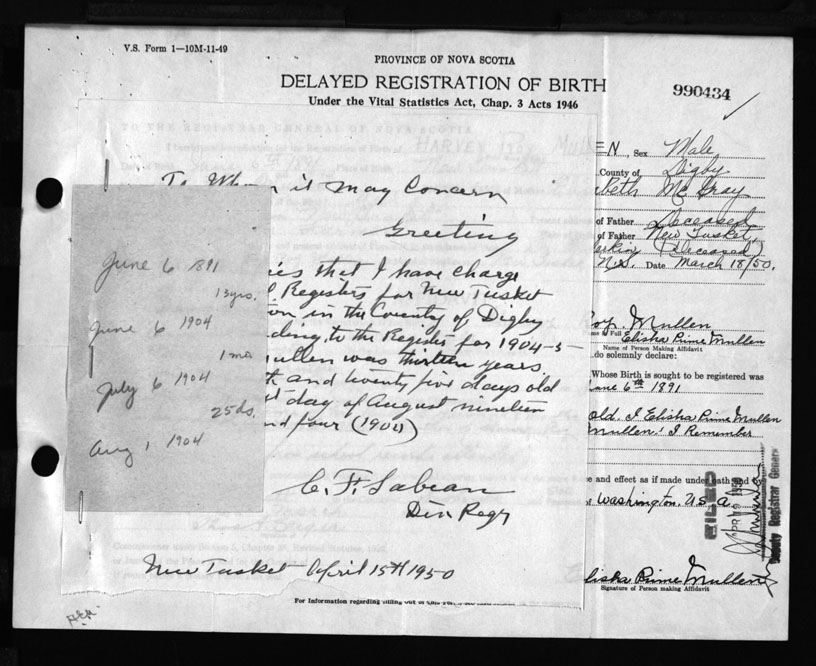 V.S. Form 1—10M-11-49
PROVINCE OF NOVA SCOTIA
DELAYED REGISTRATION OF BIRTH
Under the Vital Statistics Act, Chap. 3 Acts 1946
990434
TO THE REGISTRAR GENERAL OF NOVA SCOTIA
HARVEY
EN, Sex Male
County of Digby
beth McGray
of Father Deceased
of Father New Tusket
(Deceased)
N.S. Date March 18/50.
To Whom it may Concern
Greeting
ies that I have charge
l Registers for New Tusket
ion in the County of Digby
ding to the Register for 1904-5-
Mullen was thirteen years
th and twenty five days old
st day of August nineteen
nd four (1904)
C. F. Sabean
Div Regr
New Tusket April 15th 1950
June 6 1891
13 yrs.
June 6 1904
1 mo
July 6 1904
25 ds.
Aug 1 1904
Roy. Mullen
Elisha Prime Mullen
Name of Person Making Affidavit
do solemnly declare:
Whose Birth is sought to be registered was
June 6th 1891
old. I Elisha Prime Mullen
Mullen. I Remember
e and effect as if made under oath and by
of Washington. U.S.A.
FILED
APR 19 1950
Deputy Registrar General
Elisha Prime Mullen
Signature of Person making Affidavit
For Information regarding filling out of this Form